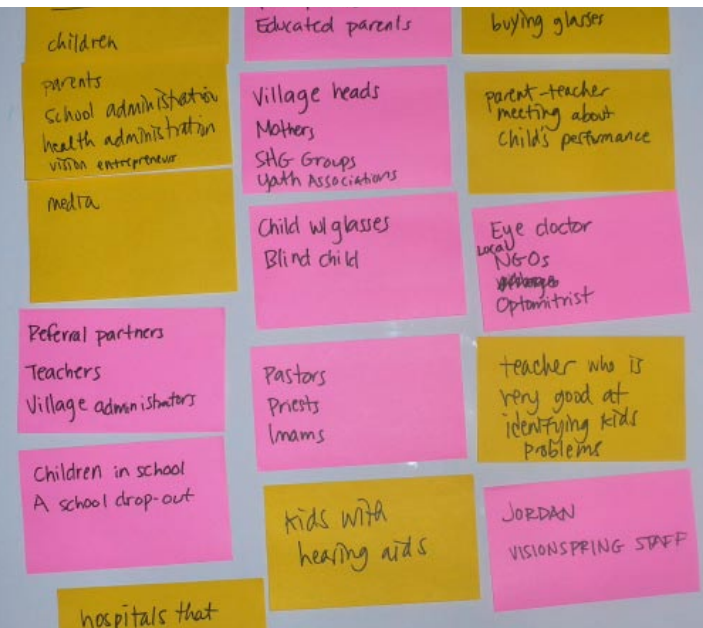 children
parents
School administration
health administration
vision entrepreneur
media
Referral partners
Teachers
Village administrators
Children in school
A school drop-out
hospitals that
Educated parents
Village heads
Mothers
SHG Groups
Yoth Associations
Child w/ glasses
Blind child
Pastors
Priests
Imams
kids with
hearing aids
buying glasses
parent-teacher
meeting about
child's performance
Eye doctor
Local
NGOs
Optomitrist
teacher who is
very good at
identifying kids
problems
JORDAN
VISIONSPRING STAFF